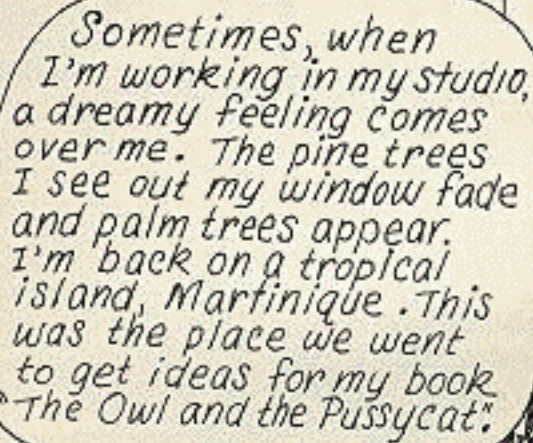 Sometimes, when
I'm working in my studio,
a dreamy feeling comes
over me. The pine trees
I see out my window fade
and palm trees appear.
I'm back on a tropical
island, Martinique. This
was the place we went
to get ideas for my book
"The Owl and the Pussycat".